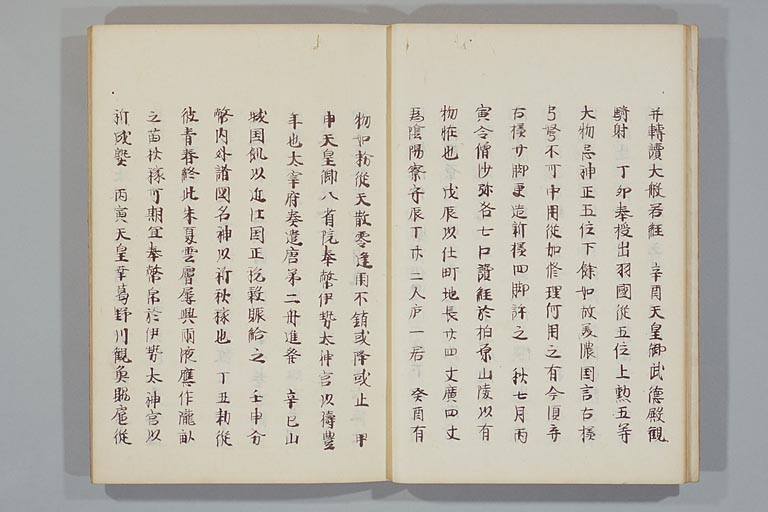 并轉讀大般若経 辛酉天皇御武德殿観
騎射 丁卯奉授出羽國從五位上勲五等
大物忌神正五位下餘如故美濃国言古様
弓弩不可中用從加修理何用之有今須弃
古様廿脚更造新様四脚許之 秋七月丙
寅令僧沙弥各七口讀経於柏原山陵以有
物恠也 戊辰以仕町地長廿四丈廣四丈
爲陰陽寮守辰丁廿二人庐一居 癸酉有
物如粉從天散零逢雨不銷或降或止 甲
申天皇御八省院奉幣伊勢太神宮以禱豊
年也太宰府奏遣唐第二舶進發 辛巳山
城国飢以近江国正税穀賑給之 壬申分
幣内外諸國名神以祈秋稼也 丁丑勅從
彼青春終此朱夏雲層屡興雨液應作隴畝
之苗秋稼可期宜奉幣帛於伊勢太神宮以
祈成熟 丙寅天皇幸葛野川観魚賜扈從